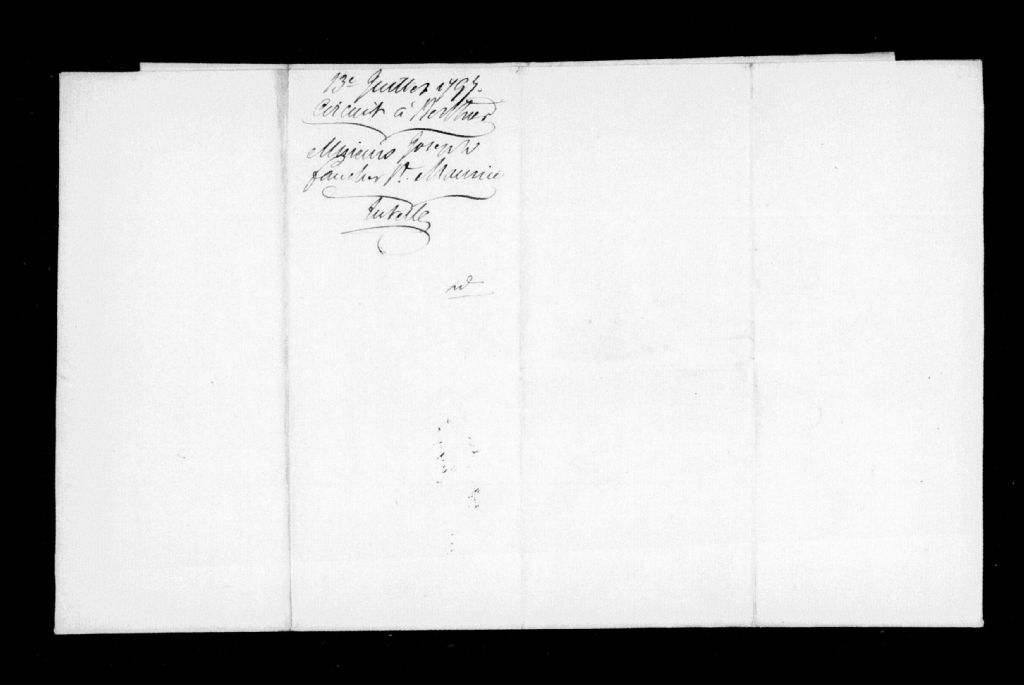 13e Juillet 1797.
Circuit à Berthier
Mineurs Joseph
faucher St. Maurice
Tutelle